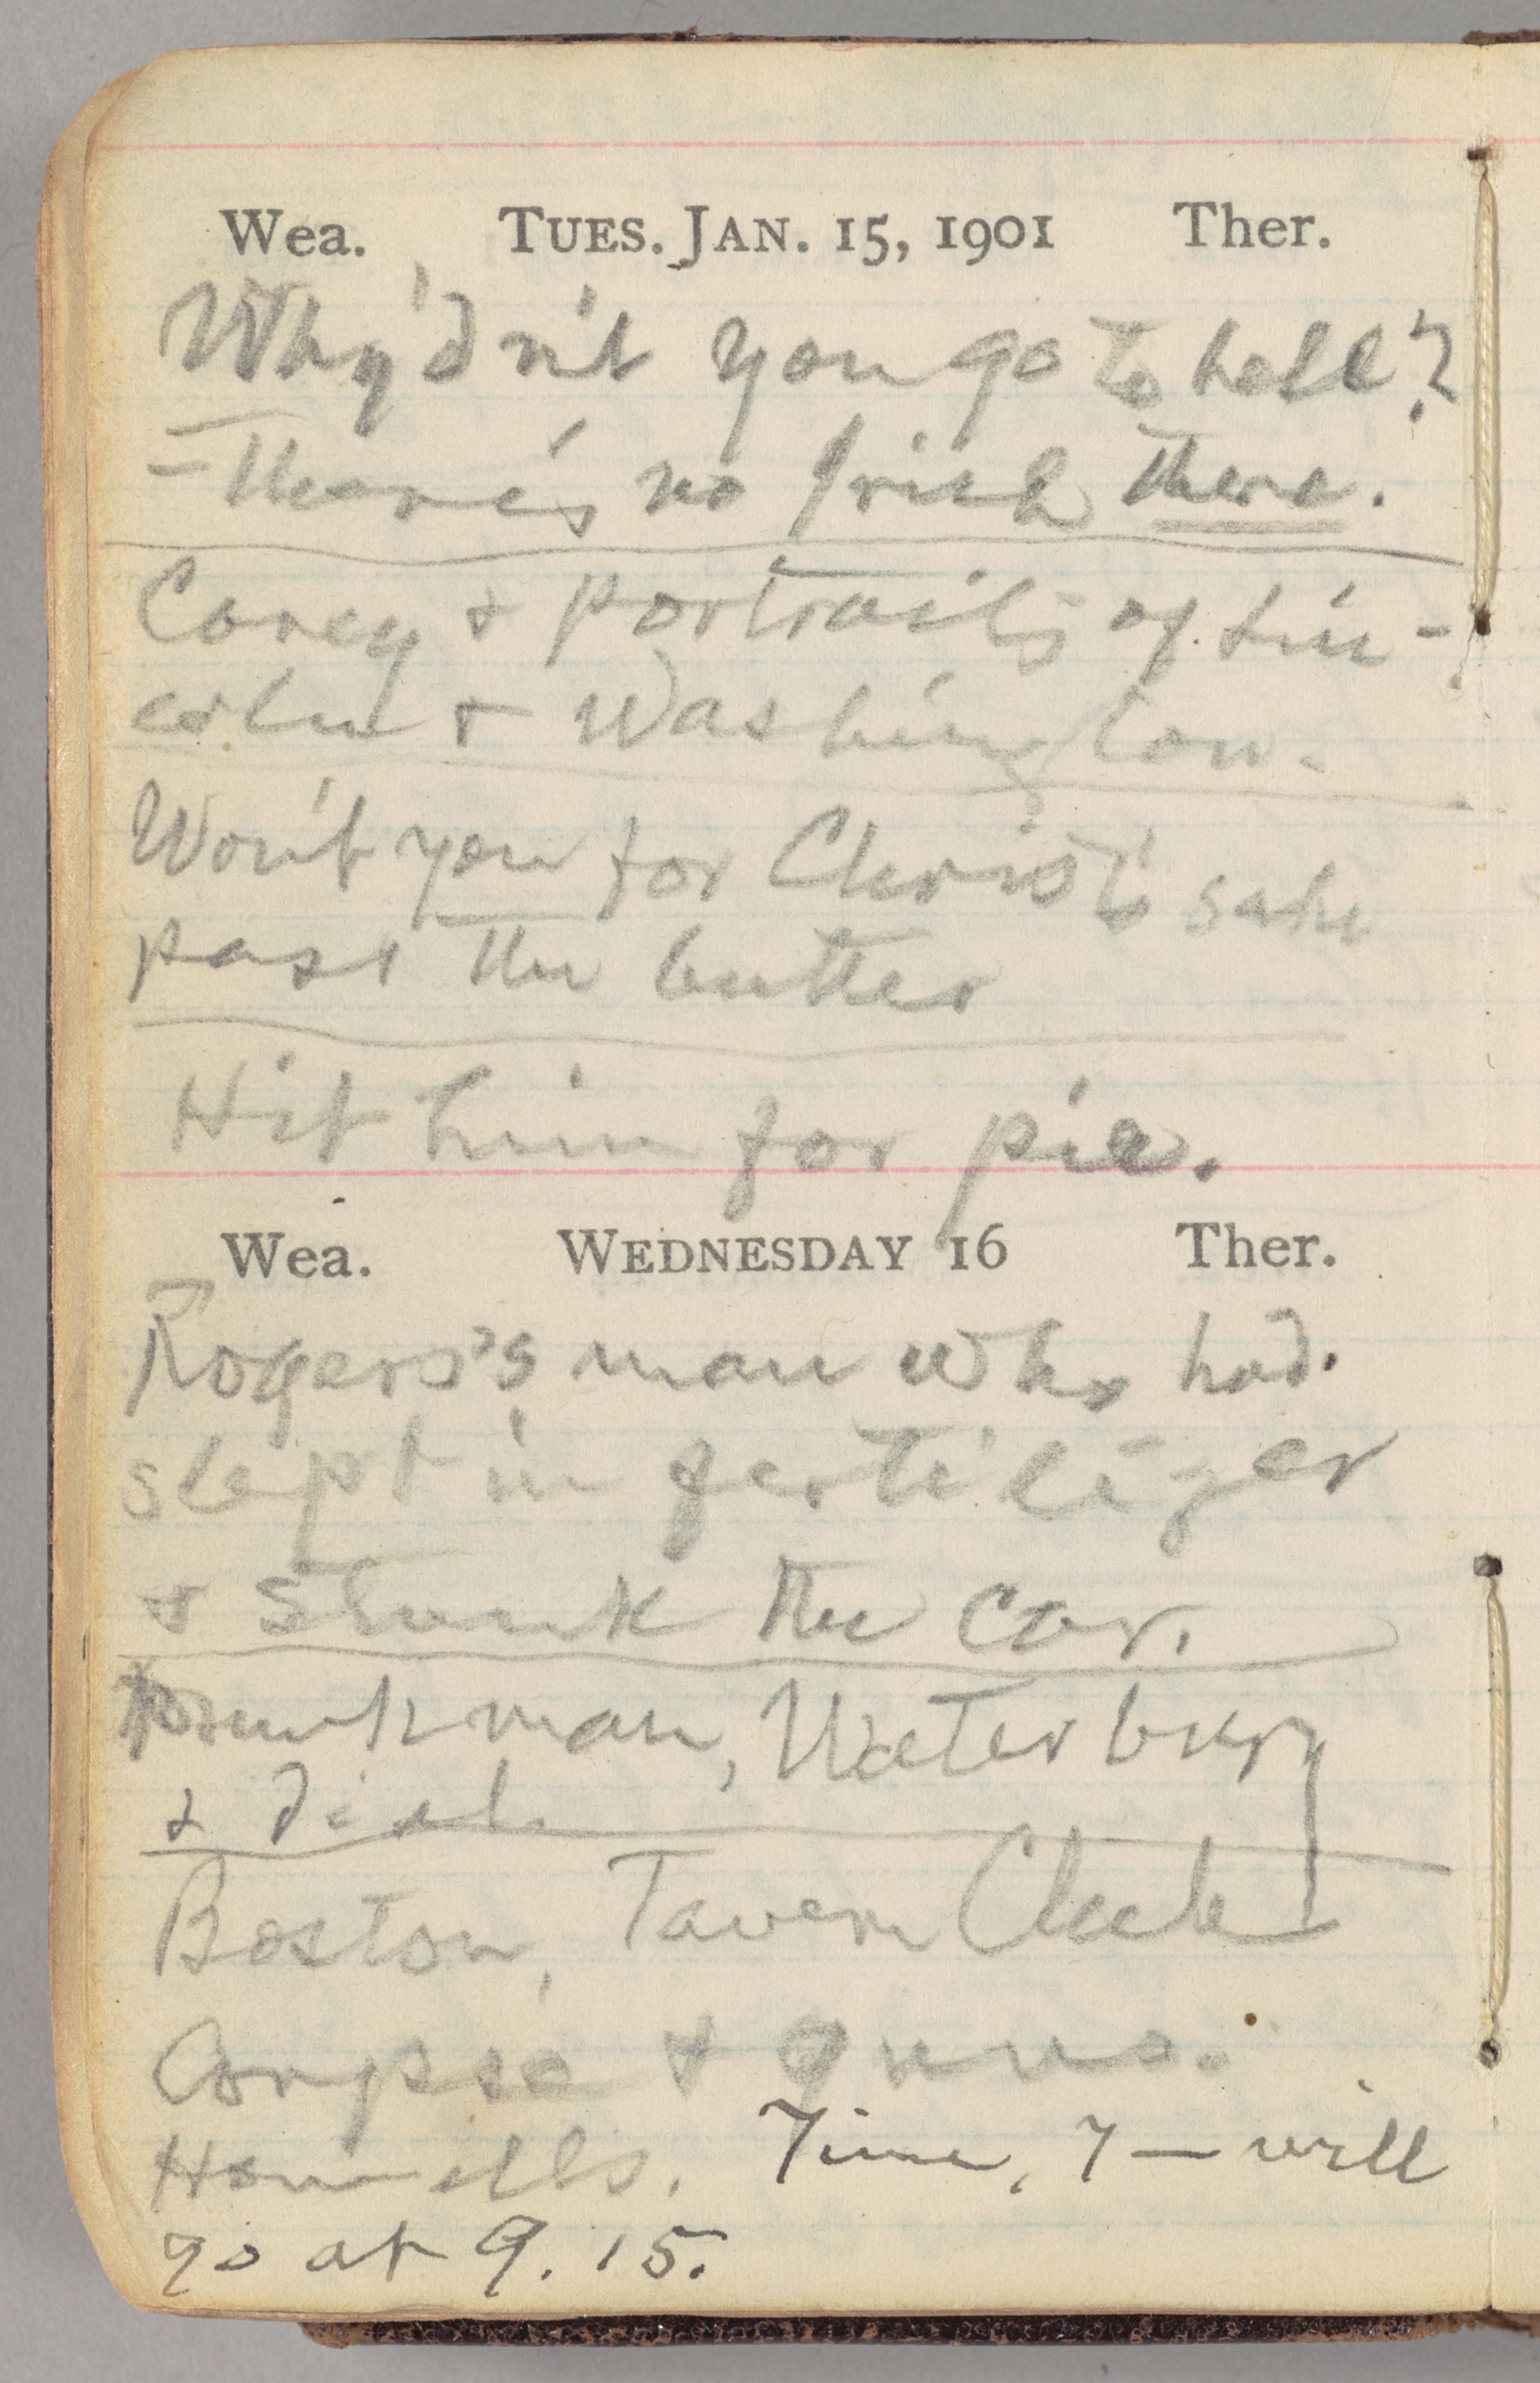 Wea. TUES. JAN. 15, 1901 Ther.
Why'd n't you go to hell?
— There's no Irish there.
Carey & portraits of Lin-
coln & Washington.
Won't you for Christ's sake
pass the butter
Hit him for pie.
Wea. WEDNESDAY 16 Ther.
Rogers's man who had.
slept in fertilizer
& stunk the car.
Drunk man, Waterbury
& dial
Boston, Tavern Club
Corpse &
Howells. Time, 7 — will
go at 9.15.